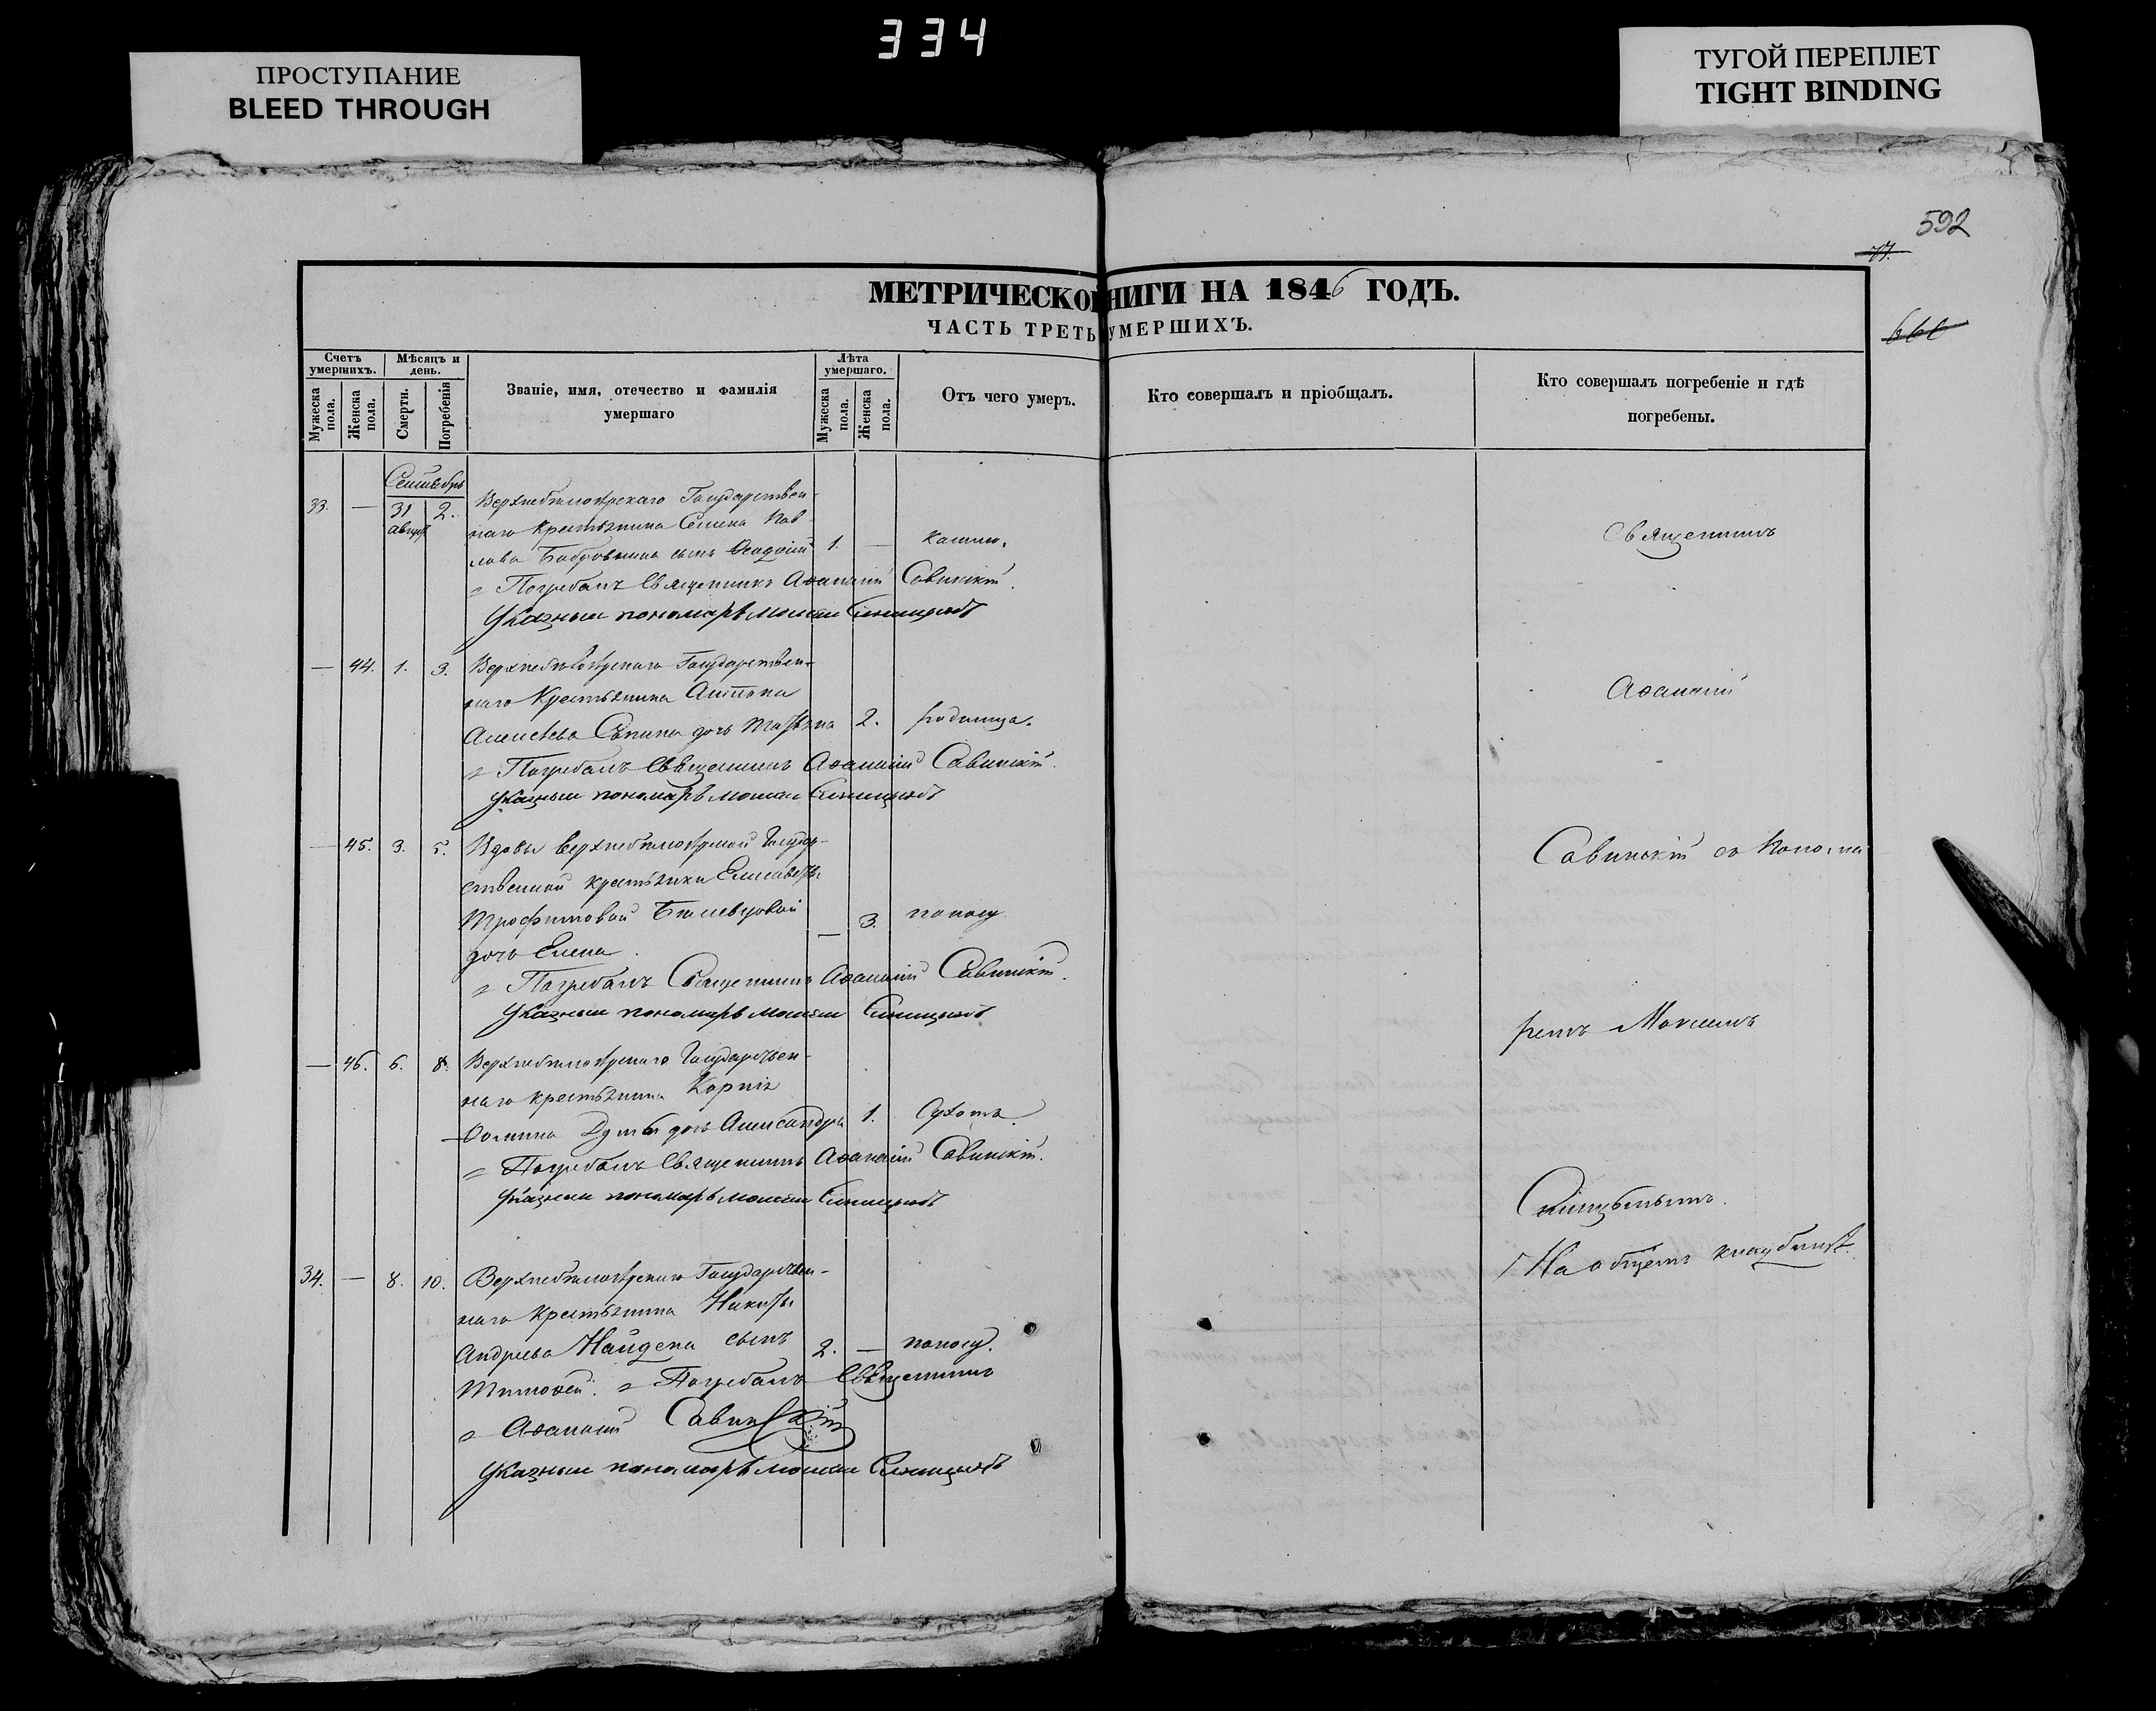 334
ПРОСТУПАНИЕ
BLEED THROUGH
ТУГОЙ ПЕРЕПЛЕТ
TIGHT BINDING
592
77.
МЕТРИЧЕСКОЙ КНИГИ НА 1846 ГОДЪ.
ЧАСТЬ ТРЕТЬ УМЕРШИХЪ.
Счетъ умершихъ.
Мужеска пола.
Женска пола.
Мѣсяцъ и день.
Смерти.
Погребенія
Званіе, имя, отечество и фамилія умершаго
Лѣта умершаго.
Мужеска пола.
Женска пола.
Отъ чего умеръ.
Кто совершалъ и пріобщалъ.
Кто совершалъ погребеніе и гдѣ погребены.
Сентябрь
33. — 31 2. Верхнебѣлозѣрскаго Государствен-
август наго крестьянина Семена Пав-
лова Бобровника сынъ 1. — кашель.
Погребалъ Священникъ Аѳанасій Савинскій.
Указный пономарь Моисей Синицкій
— 44. 1. 3. Верхнебѣлозѣрскаго Государствен-
наго Крестьянина Антона
Алексѣева дочь Татьяна 2. родимца.
Погребалъ Священникъ Аѳанасій Савинскій.
Указный пономарь Моисей
— 45. 3. 5. Вдовы Верхнебѣлозѣрской Государ-
ственной крестьянки Елисаветы
Трофимовой
дочь Елена. — 3. поносу
Погребалъ Священникъ Аѳанасій Савинскій.
Указный пономарь Моисей
— 46. 6. 8. Верхнебѣлозѣрскаго Государствен-
наго крестьянина Корнія
Ѳомина дочь Александра 1. Сухоты.
Погребалъ Священникъ Аѳанасій Савинскій.
Указный пономарь Моисей
34. — 8. 10. Верхнебѣлозѣрскаго Государствен-
наго крестьянина Никиты
Андреева Найдена сынъ 2. — поносу.
Тимоѳей. Погребалъ Священникъ
Аѳанасій Савинскій
Указный пономарь Моисей
Священникъ
Аѳанасій
Савинскій съ Понома
ремъ Моисеемъ
На общемъ кладбищѣ.